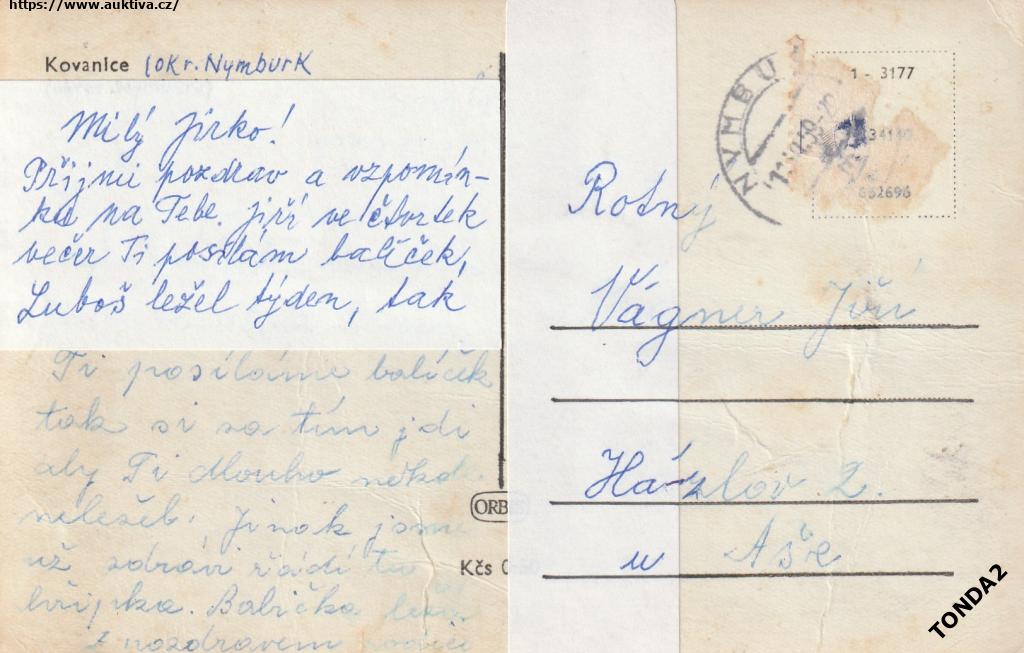 https://www.auktiva.cz/
Kovanice (okr. Nymburk
Milý Jirko!
Přijmi pozdrav a vzpomín-
ku na Tebe. Jiří ve čtvrtek
večer Ti posílám balíček,
Luboš ležel týden, tak
Ti posíláme balíček
tak si za tím jdi
aby Ti dlouho někde
neležel. Jinak jsme
už zdrávi řádí tu
chřipka. Babička leží
S pozdravem rodiče
ORB
Kčs 0
NYMBU
1 - 3177
34140
652696
Rotný
Vágner Jiří
Házlov 2.
u Aše
TONDA2